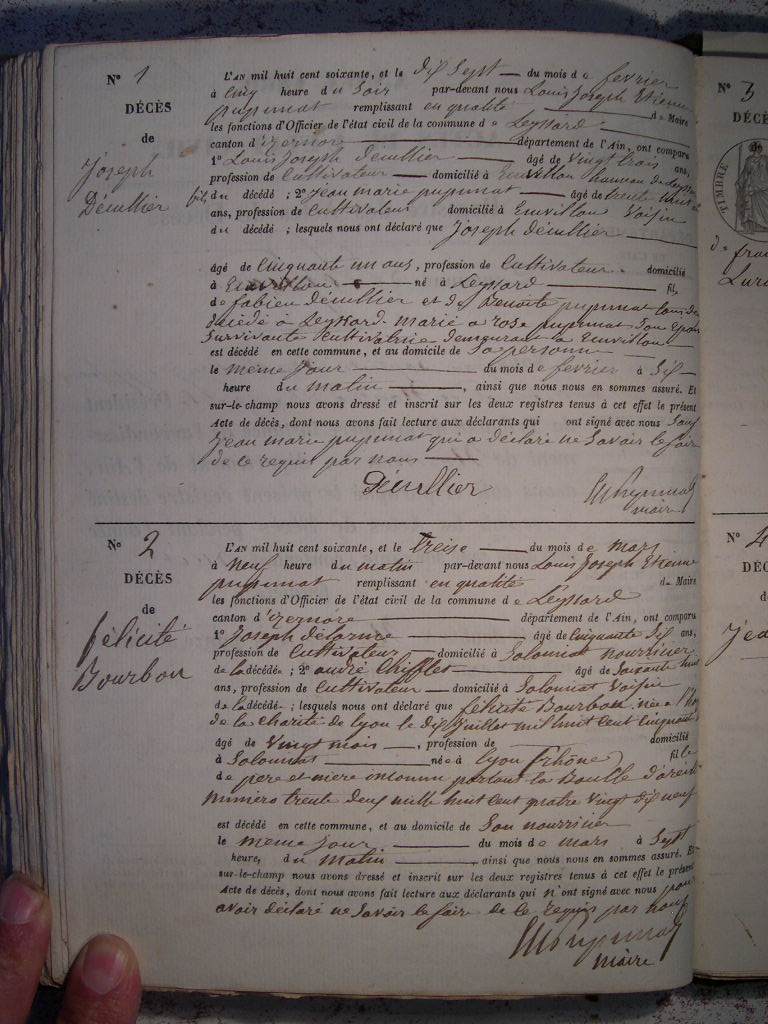 N° 1
DÉCÈS
de
Joseph
Décullier
L'AN mil huit cent soixante, et le dix Sept du mois d e fevrier
à Cinq heure du Soir par-devant nous Louis Joseph Etienne
pupunat remplissant en qualité de Maire
les fonctions d'Officier de l'état civil de la commune d e Leyssard
canton d'izernore département de l'Ain, ont comparu
1° Louis Joseph Décullier âgé de vingt trois ans,
profession de Cultivateur domicilié à Emvillon hameau de Leyssard
fils du décédé ; 2° Jean marie pupunat âgé de trente huit
ans, profession de Cultivateur domicilié à Emvillon Voisin
du décédé ; lesquels nous ont déclaré que Joseph Décullier
âgé de Cinquante un ans, profession de Cultivateur domicilié
à Emvillon né à Leyssard fils
de fabien Décullier et de Benoite pupunat tous deux
décédé à Leyssard marié a rose pupunat Son Epouse
Survivante Cultivatrice demeurant a Emvillon
est décédé en cette commune, et au domicile de Sa personne
le même jour du mois d e fevrier à Six
heure du matin , ainsi que nous nous en sommes assuré. Et
sur-le-champ nous avons dressé et inscrit sur les deux registres tenus à cet effet le présent
Acte de décès, dont nous avons fait lecture aux déclarants qui ont signé avec nous Sauf
Jean marie pupunat qui a déclaré ne Savoir le faire
de ce requis par nous
Décullier
pupunat
maire
N° 2
DÉCÈS
de
félicité
Bourbon
L'AN mil huit cent soixante, et le treise du mois d e mars
à neuf heure du matin par-devant nous Louis Joseph Etienne
pupunat remplissant en qualité de Maire
les fonctions d'Officier de l'état civil de la commune d e Leyssard
canton d'izernore département de l'Ain, ont comparu
1° Joseph délorme âgé de Cinquante dix ans,
profession de Cultivateur domicilié à Solomiat nourricier
de la décédée ; 2° andré Chiffles âgé de Soixante huit
ans, profession de Cultivateur domicilié à Solomiat Voisin
de la décédé ; lesquels nous ont déclaré que félicité Bourbon née a l'hos
de la charité de Lyon le dix Juillet mil huit Cent Cinquante
âgé de Vingt mois , profession de domicilié
à Solomiat née à Lyon (rhône) fille
de pere et mere inconnu portant la Boucle d'oreille
numero trente deux mille huit Cent quatre Vingt dix neuf
est décédé en cette commune, et au domicile de Son nourricier
le même jour du mois d e mars à Sept
heure, du matin , ainsi que nous nous en sommes assuré. Et
sur-le-champ nous avons dressé et inscrit sur les deux registres tenus à cet effet le présent
Acte de décès, dont nous avons fait lecture aux déclarants qui n'ont signé avec nous pour
avoir déclaré ne Savoir le faire de ce requis par nous
pupunat
maire
N° 3
DÉCÈS
de
TIMBRE
N° 4